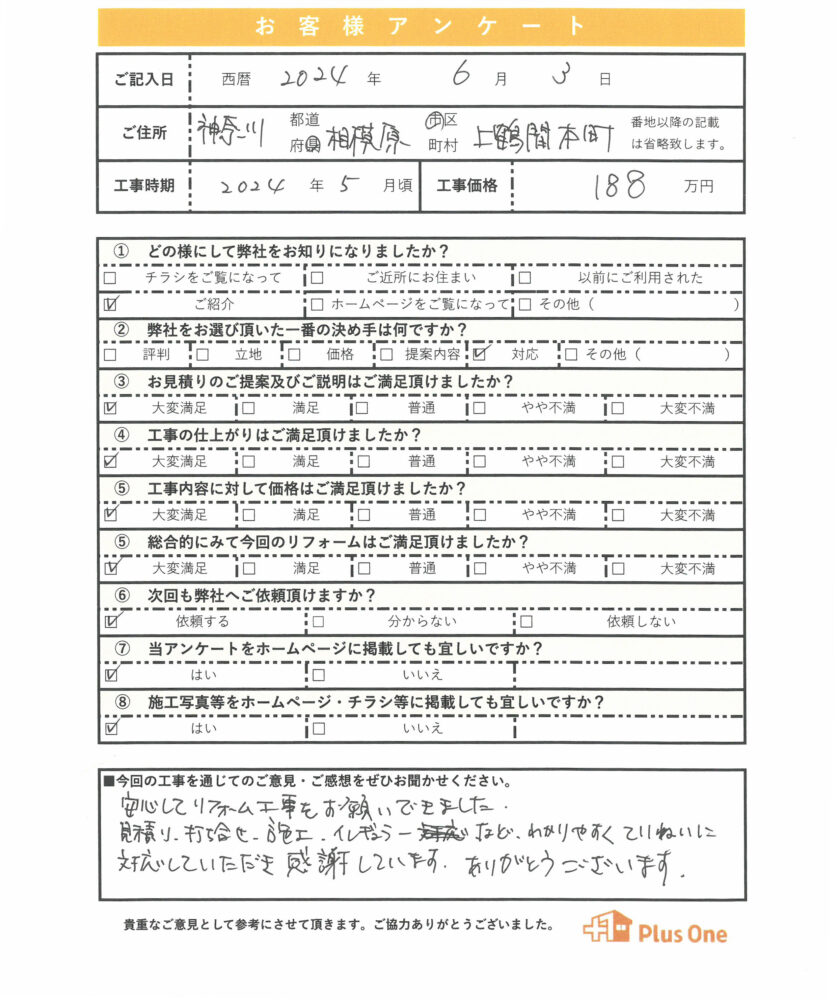 お客様アンケート
ご記入日 西暦 2024 年 6 月 3 日
ご住所 神奈川 都道府県 相模原 市区町村 上鶴間本町 番地以降の記載は省略致します。
工事時期 2024 年 5 月頃 工事価格 188 万円
① どの様にして弊社をお知りになりましたか？
□ チラシをご覧になって □ ご近所にお住まい □ 以前にご利用された
☑ ご紹介 □ ホームページをご覧になって □ その他（ ）
② 弊社をお選び頂いた一番の決め手は何ですか？
□ 評判 □ 立地 □ 価格 □ 提案内容 ☑ 対応 □ その他（ ）
③ お見積りのご提案及びご説明はご満足頂けましたか？
☑ 大変満足 □ 満足 □ 普通 □ やや不満 □ 大変不満
④ 工事の仕上がりはご満足頂けましたか？
☑ 大変満足 □ 満足 □ 普通 □ やや不満 □ 大変不満
⑤ 工事内容に対して価格はご満足頂けましたか？
☑ 大変満足 □ 満足 □ 普通 □ やや不満 □ 大変不満
⑤ 総合的にみて今回のリフォームはご満足頂けましたか？
☑ 大変満足 □ 満足 □ 普通 □ やや不満 □ 大変不満
⑥ 次回も弊社へご依頼頂けますか？
☑ 依頼する □ 分からない □ 依頼しない
⑦ 当アンケートをホームページに掲載しても宜しいですか？
☑ はい □ いいえ
⑧ 施工写真等をホームページ・チラシ等に掲載しても宜しいですか？
☑ はい □ いいえ
■今回の工事を通じてのご意見・ご感想をぜひお聞かせください。
安心してリフォーム工事をお願いできました．
見積り、打ち合せ、施工、イレギュラー など、わかりやすくていねいに
対応していただき感謝しています．ありがとうございます．
貴重なご意見として参考にさせて頂きます。ご協力ありがとうございました。
Plus One